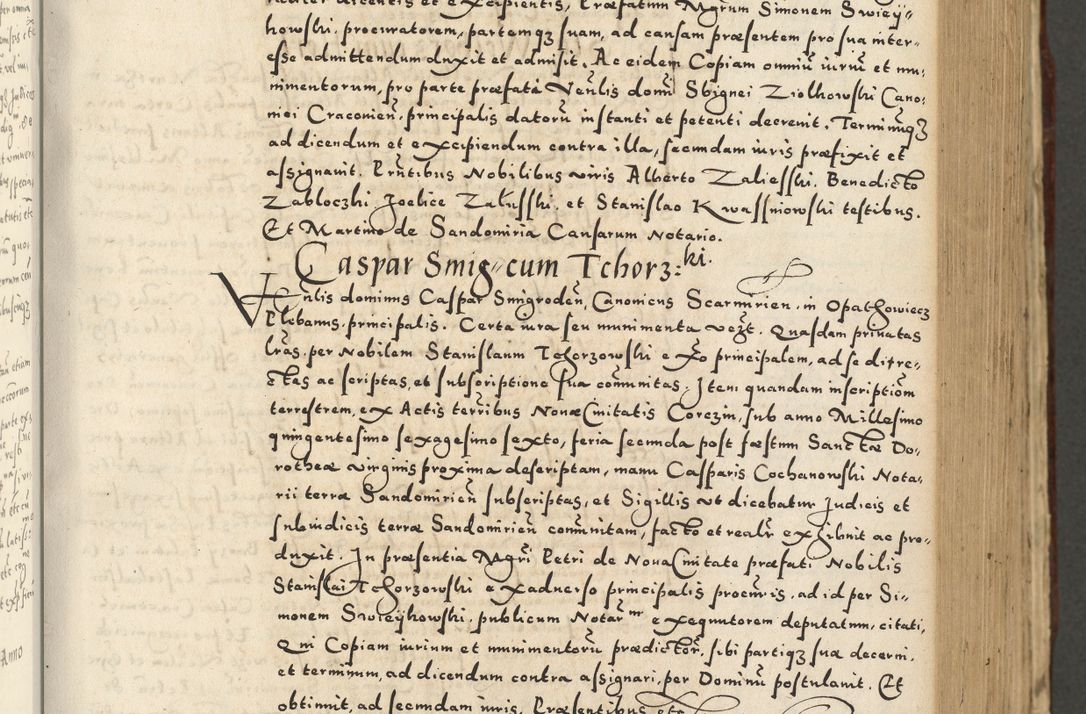 raliter dicentis et excipientis, Præfatum Mgrum Simonem Swiey„
howski, procuratorem, partemqz suam, ad causam præsentem pro sua inter„
esse admittendum duxit et admisit. Ac eidem Copiam omniū iuriū et mu„
nimentorum, pro parte præfati Venlis domi Sbignei Ziolkowski Cano„
nici Cracovien̄. principalis datorū instanti et petenti decrevit. Terminumqz
ad dicendum et excipiendum contra illa, secundum iuris præfixit et
assignavit. Pr̄ntibus Nobilibus viris Alberto Zaliesski. Benedicto
Zabloczki Joelice Załusski. et Stanislao Kwassniowski testibus.
Et Martino de Sandomiria Causarum Notario.
Caspar Smig„ cum Tchorz:ki.
Venlis dominus Caspar Smigroden̄, Canonicus Scarmirien. in Opathowiecz
Plebanus. principalis. Certa iura seu munimenta vezt. Quasdam privatas
lr̄as. per Nobilem Stanislaum Tchorzowski exo principalem, ad se dire„
ctas ac scriptas, et subscriptione sua com̄unitas. Item quandam inscriptiōm
terrestrem, ex Actis terr̄ibus Novæ Civitatis Corczin, sub anno Millesimo
quingentesimo sexagesimo sexto, feria secunda post fæstum Sanctæ Do„
rotheæ virginis proxima descriptam, manu Casparis Cochanowski Nota„
rii terræ Sandomirien̄ subscriptas, et Sigillis ut dicebatur Judicis et
subiudicis terræ Sandomirien̄ com̄unitam, facto et realr̄ exhibuit ac pro„
duxit. In præsentia Mgri Petri de Nova Civitate præfati Nobilis
Stanislai Tchorzowski exadverso principalis procuris, ad id per Si„
monem Swieykowski, publicum Notar̄ m exequutorem deputatum, citati,
Qui Copiam iurium et munimentorū prædictor̄, sibi partiqz suæ decerni,
et terminum, ad dicendum contra assignari, per Dominū postulavit. Et
obtinuit, ad secundum iuris. Præsentibus etc